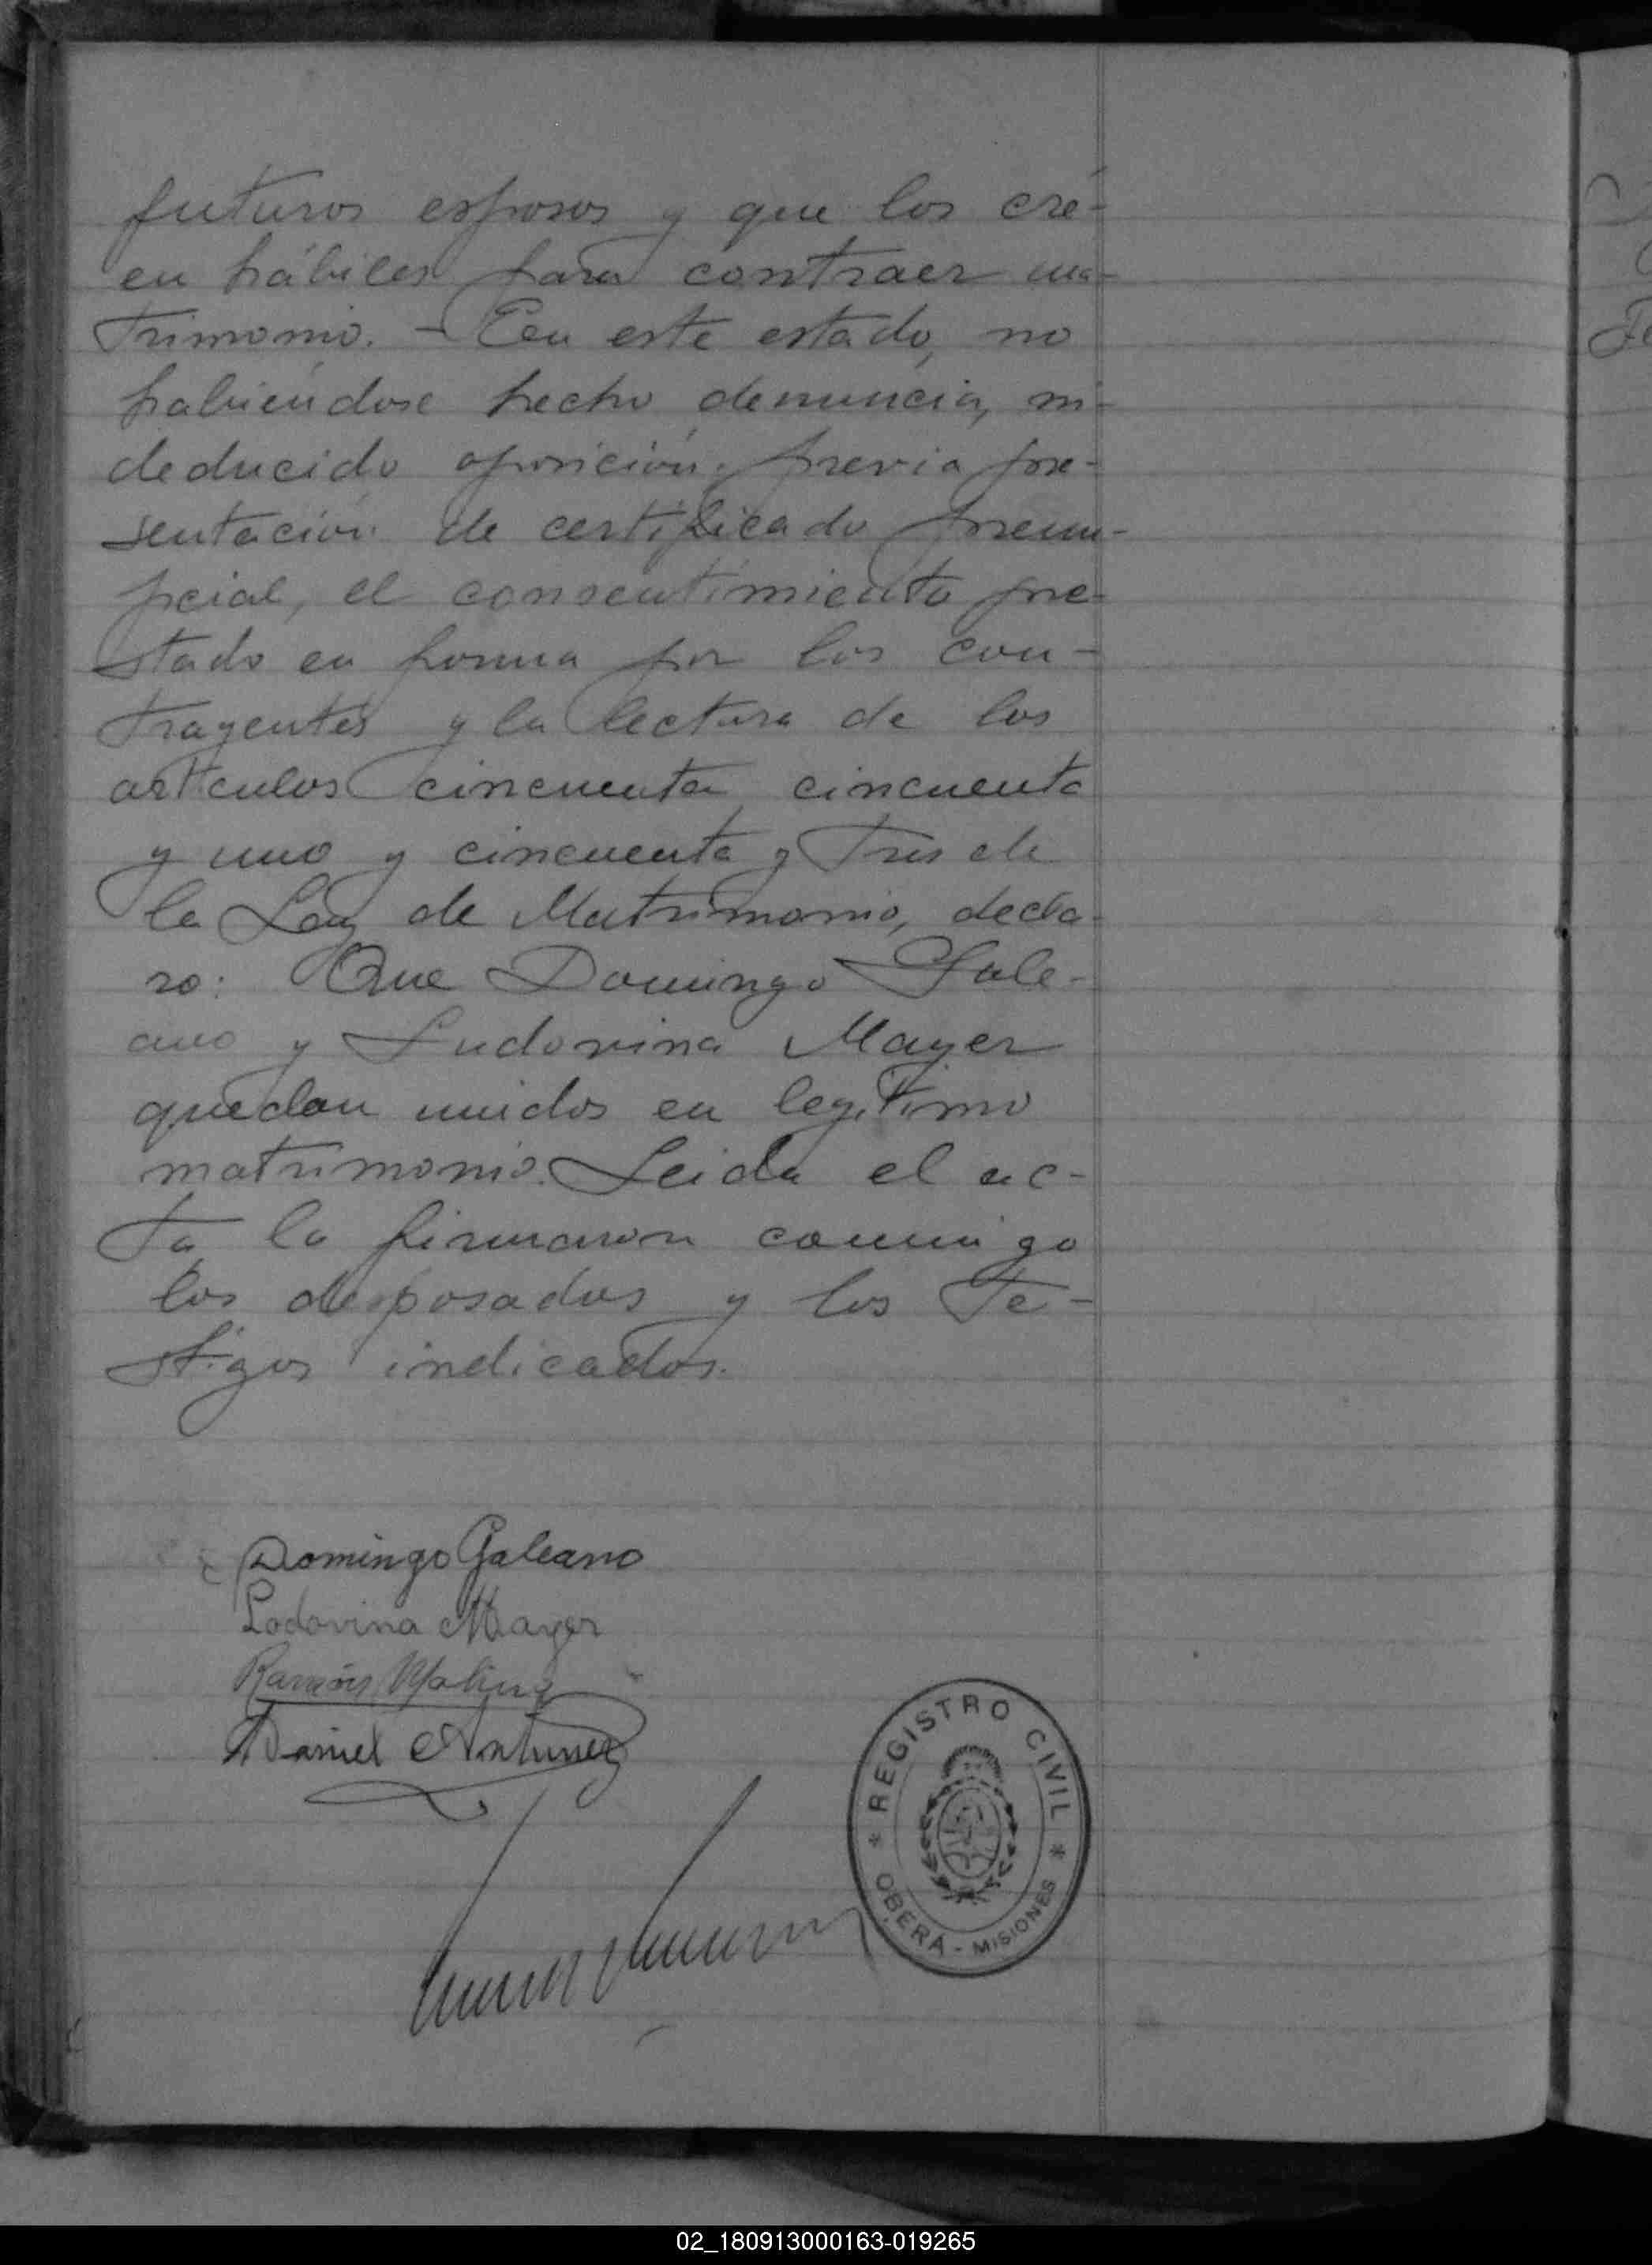 futuros esposos y que los cré-
en hábiles para contraer ma-
trimonio. - En este estado, no
habiéndose hecho denuncia, ni
deducido oposición, previa pre-
sentación de certificado prenu-
pcial, el consentimiento pre-
stado en forma por los con-
trayentes y la lectura de los
artículos cincuenta, cincuenta
y uno y cincuenta y tres de
la Ley de Matrimonio, decla-
ro: Que Domingo Gale-
ano y Ludovina Mayer
quedan unidos en legítimo
matrimonio. Leida el ac-
ta la firmaron conmigo
los desposados y los te-
stigos indicados.
Domingo Galeano
Lodovina Mayer
Ramón Molina
Daniel Antunez
REGISTRO CIVIL
OBERÁ - MISIONES
02_180913000163-019265